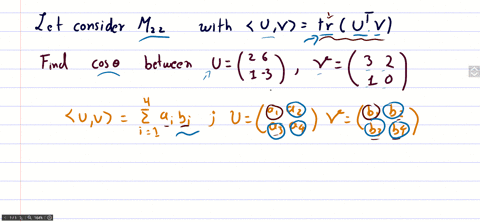 Let consider M₂₂ with <U,V> = tr(UᵀV)
Find cosθ between U = (2 6 ; 1 -3), V = (3 2 ; 1 0)
<U,V> = Σ⁴ᵢ₌₁ aᵢ bᵢ ; U = (a₁ a₂ ; a₃ a₄) V = (b₁ b₂ ; b₃ b₄)